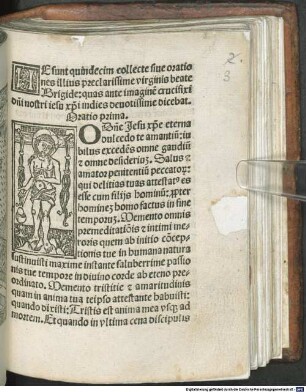 2.
3
HEsunt quindecim collecte siue oratio
nes illius preclarissime virginis beate
Brigide: quas ante imaginē crucifixi
dñi nostri iesu xp̄i indies deuotissime dicebat.
Oratio prima.
O Dñe Jesu xp̄e eterna
dulcedo te amantiū: iu
bilus excedēs omne gaudiū
⁊ omne desideriū. Salus ⁊
amator penitentiū peccatoꝝ:
qui delitias tuas attestatꝰ es
esse cum filijs hominū: ꝓpter
hominē homo factus in fine
temporū. Memento omnis
premeditatiōis ⁊ intimi me
roris quem ab initio cōcepti
onis tue in humana natura
sustinuisti maxime instante saluberrime passio
nis tue tempore in diuino corde ab eterno pre
ordinato. Memento tristitie ⁊ amaritudinis
quam in anima tua teipso attestante habuisti:
quando dixisti: Tristis est anima mea vsqꝫ ad
mortem. Et quando in vltima cena discipulis